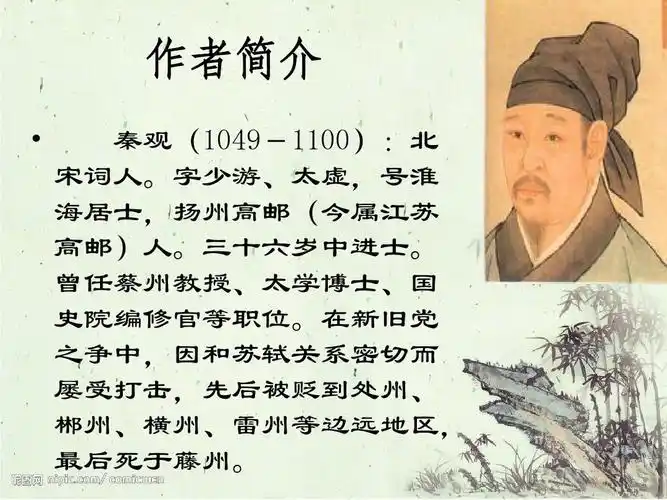 作者简介
• 秦观（1049－1100）：北
宋词人。字少游、太虚，号淮
海居士，扬州高邮（今属江苏
高邮）人。三十六岁中进士。
曾任蔡州教授、太学博士、国
史院编修官等职位。在新旧党
之争中，因和苏轼关系密切而
屡受打击，先后被贬到处州、
郴州、横州、雷州等边远地区，
最后死于藤州。
昵图网 nipic.com/comicuen